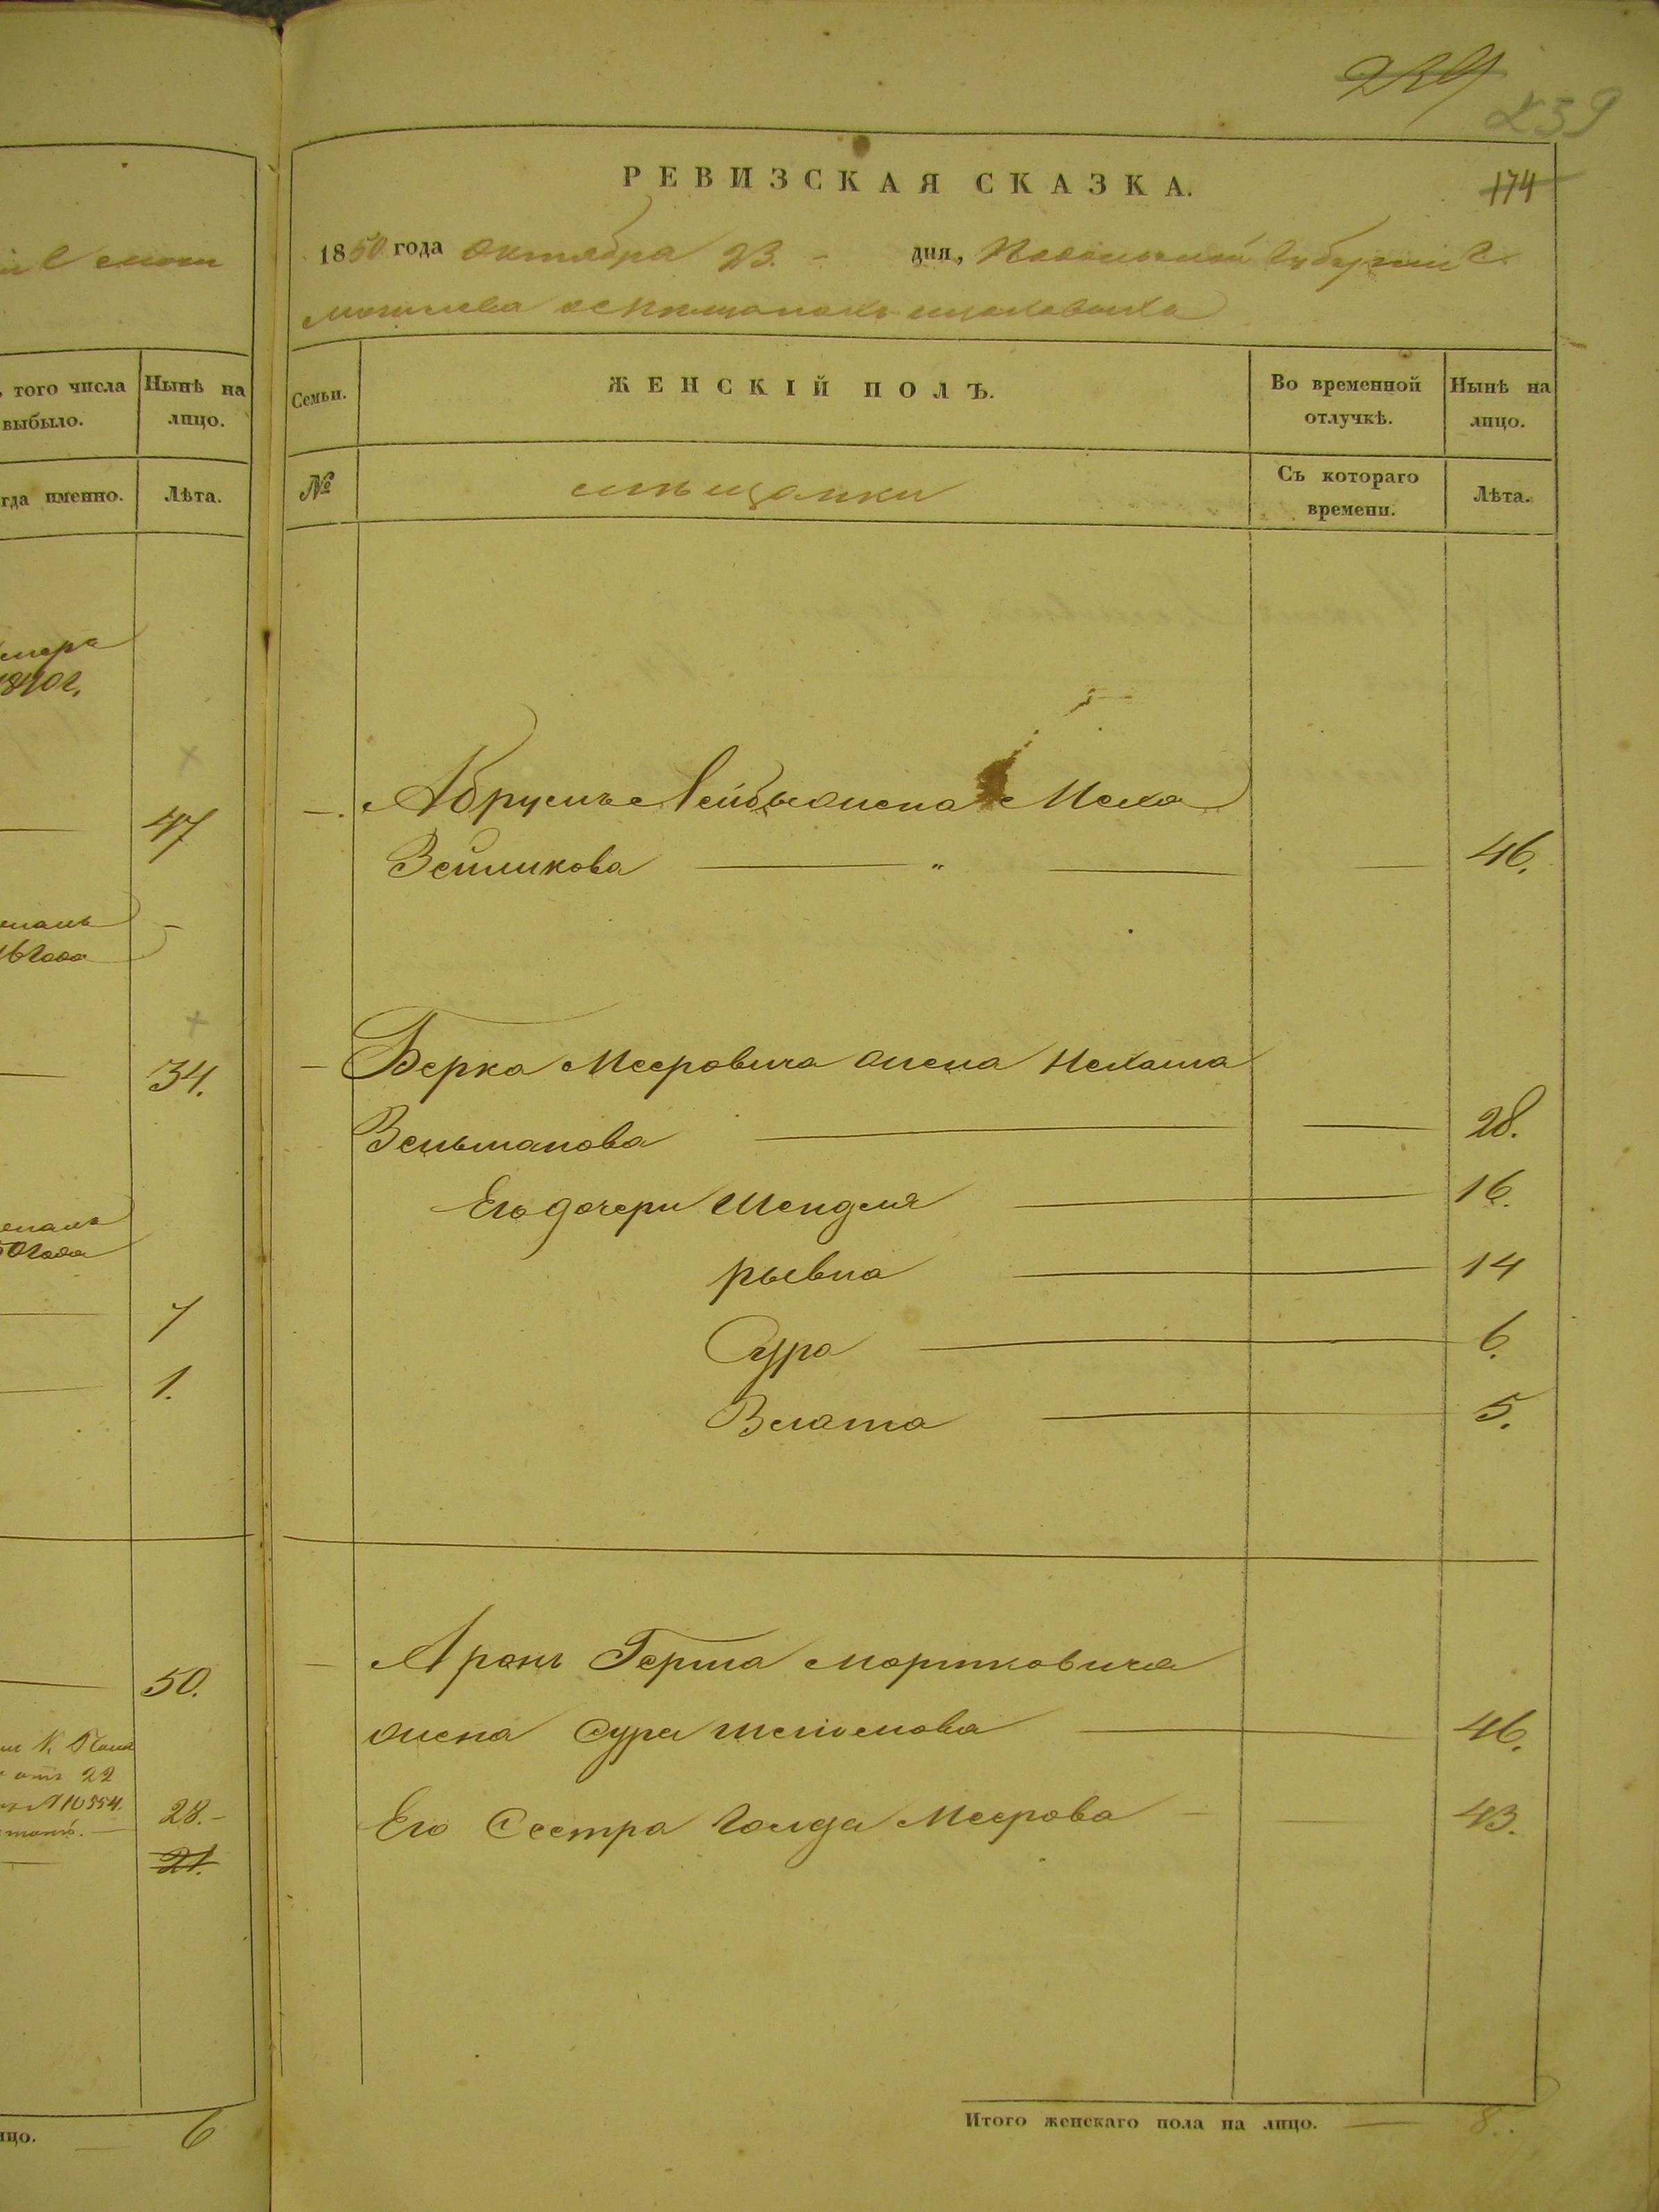 239
174
РЕВИЗСКАЯ СКАЗКА.
1850 года Октября 23. дня, Подольской Губернии г.
Могилева о
Семьи.
ЖЕНСКІЙ ПОЛЪ.
Во временной отлучкѣ.
Нынѣ на лицо.
№
мѣщанки
Съ котораго времени.
Лѣта.
Абрумъ Лейбы жена Меха
Зейликова 46.
Берка Мееровича жена Нехама
Зельманова 28.
Его дочери Шендля 16.
рывка 14
Сура 6.
Злата 5.
Аронъ Герша Мортковича
жена Сура 46.
Его Сестра Голда Меерова 43.
Итого женскаго пола на лицо. 8.
того числа выбыло.
Нынѣ на лицо.
гда именно.
Лѣта.
47
34.
7
1.
50.
отъ 22
28.
21.
ицо. 6